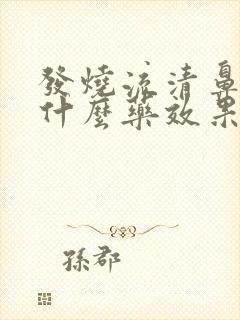 發燒流清鼻
什麼藥效果
孫郡